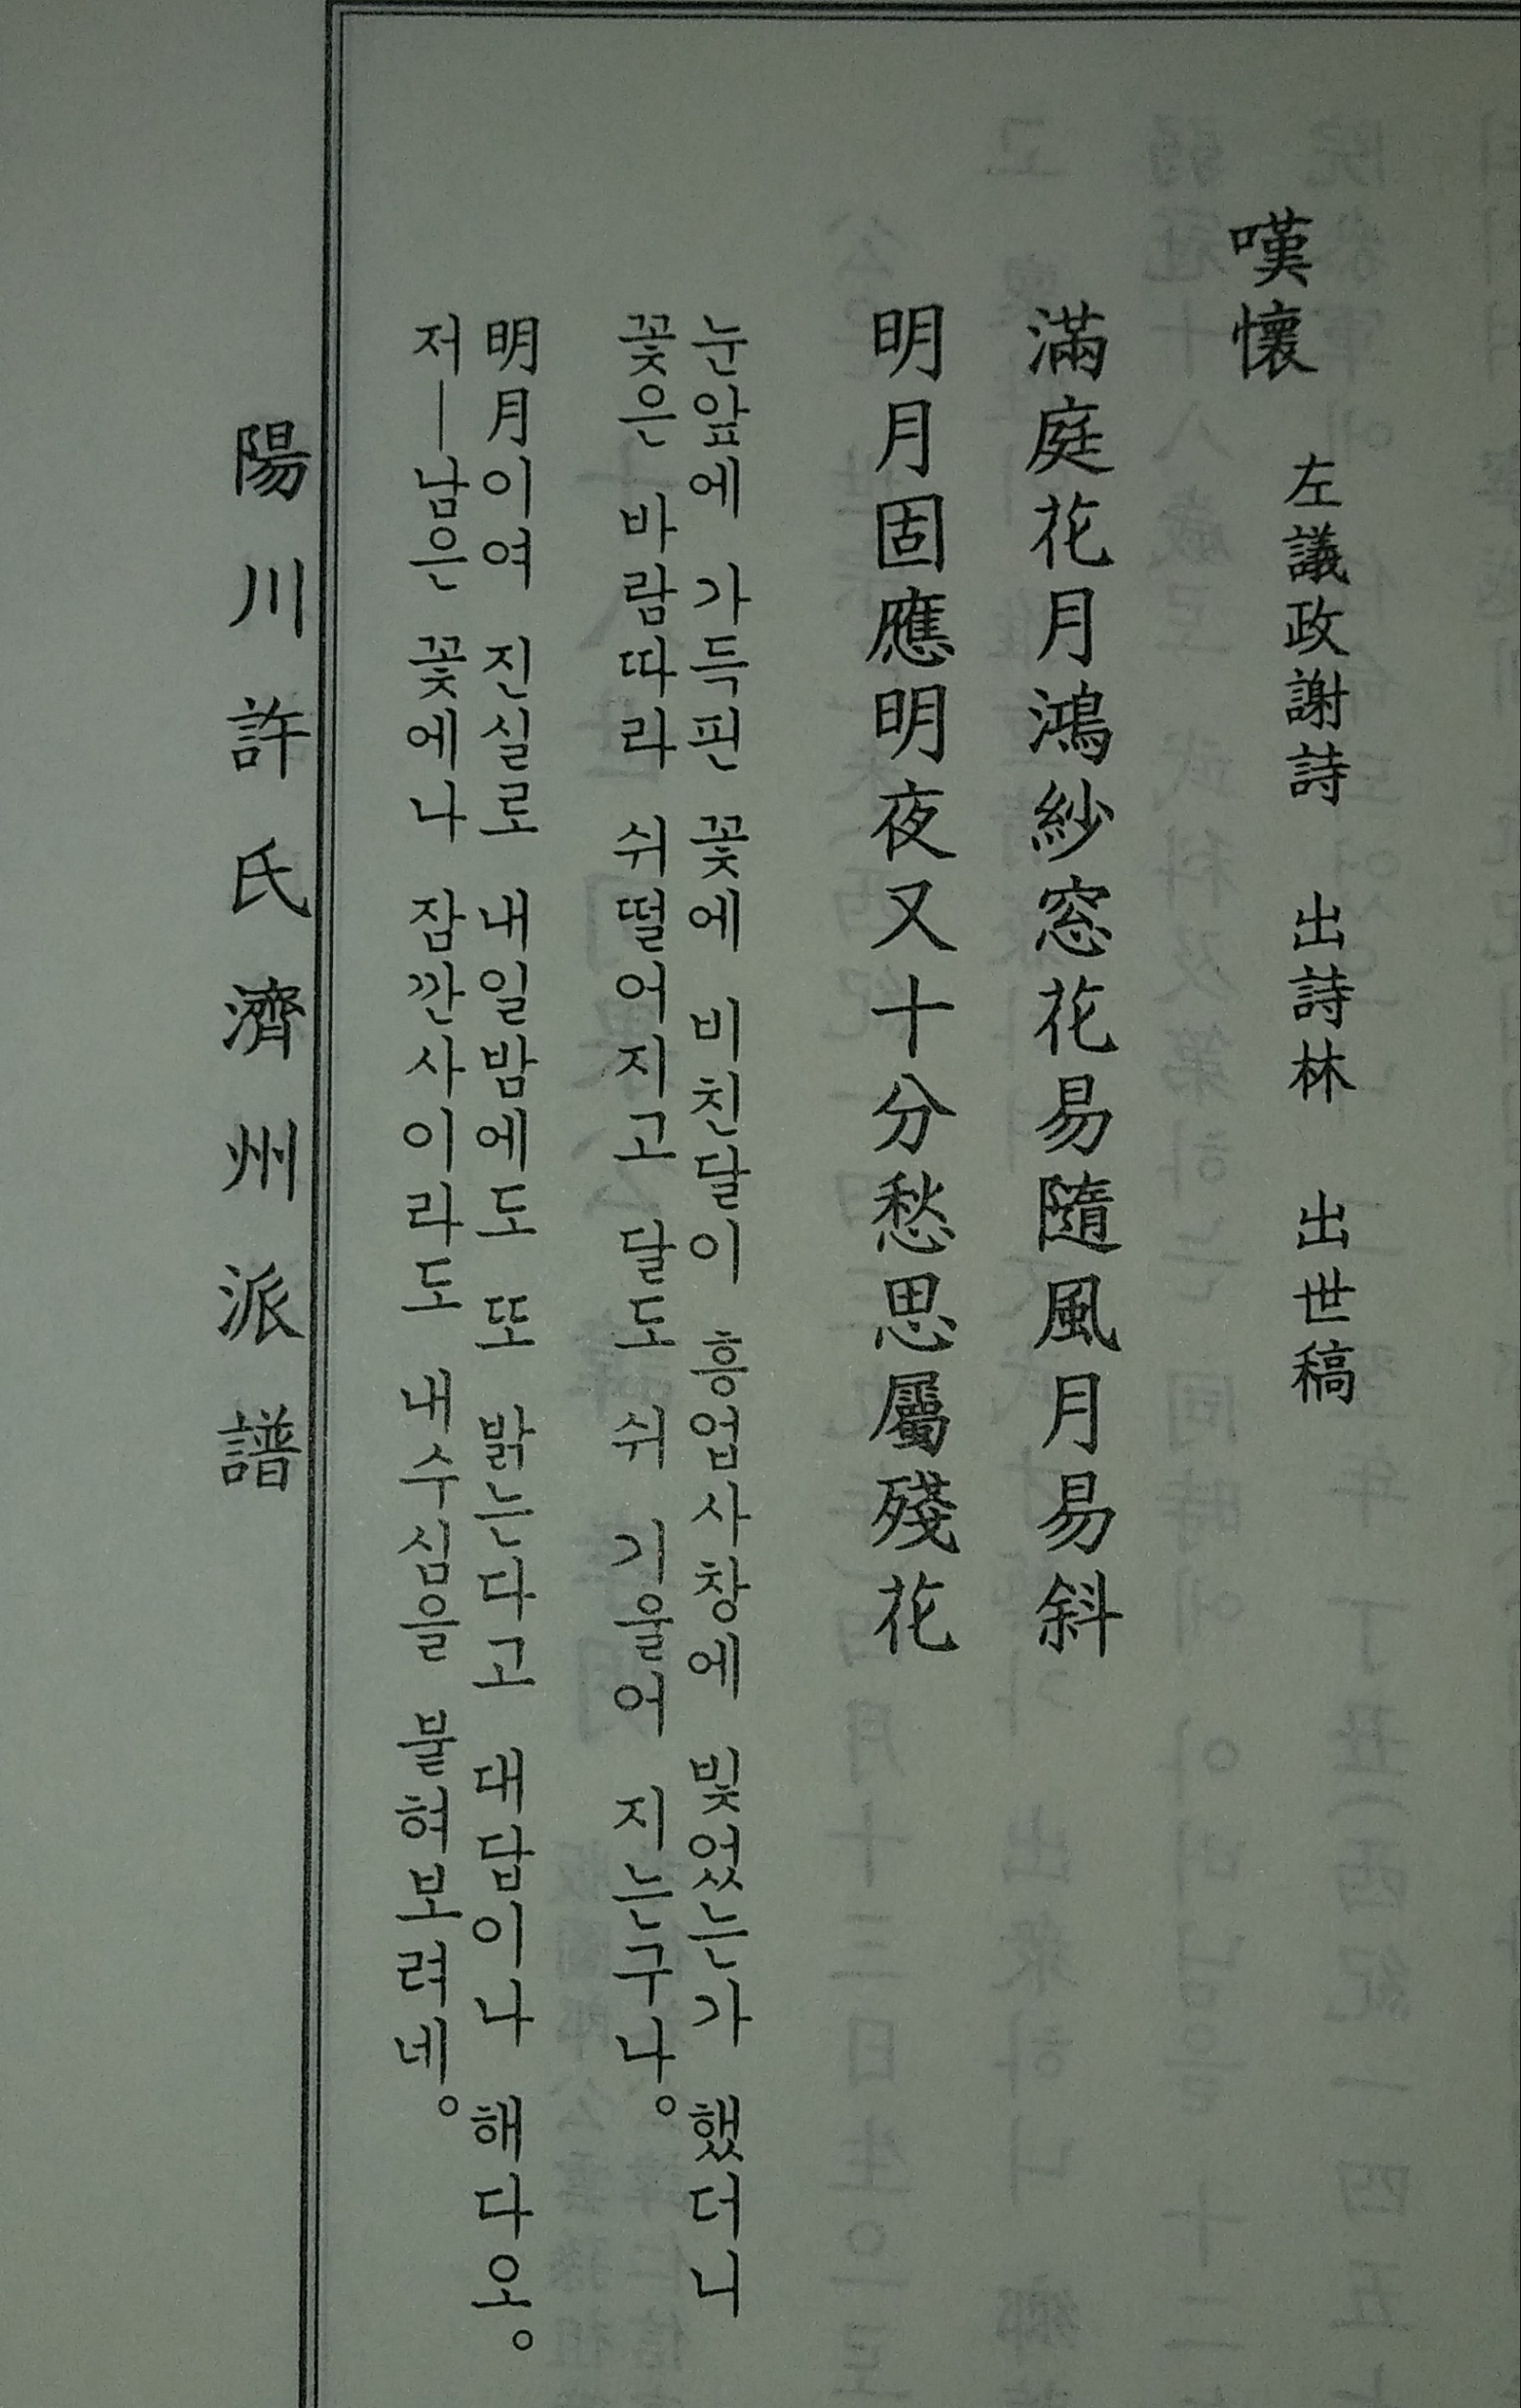 嘆懷 左議政謝詩 出詩林 出世稿
滿庭花月鴻紗窓花易隨風月易斜
明月固應明夜又十分愁思屬殘花
눈앞에 가득핀 꽃에 비친달이 흥업사창에 빛었는가 했더니
꽃은 바람따라 쉬떨어지고 달도 쉬 기울어 지는구나。
明月이여 진실로 내일밤에도 또 밝는다고 대답이나 해다오。
저—남은 꽃에나 잠깐사이라도 내수심을 붙혀보려네。
陽川許氏濟州派譜